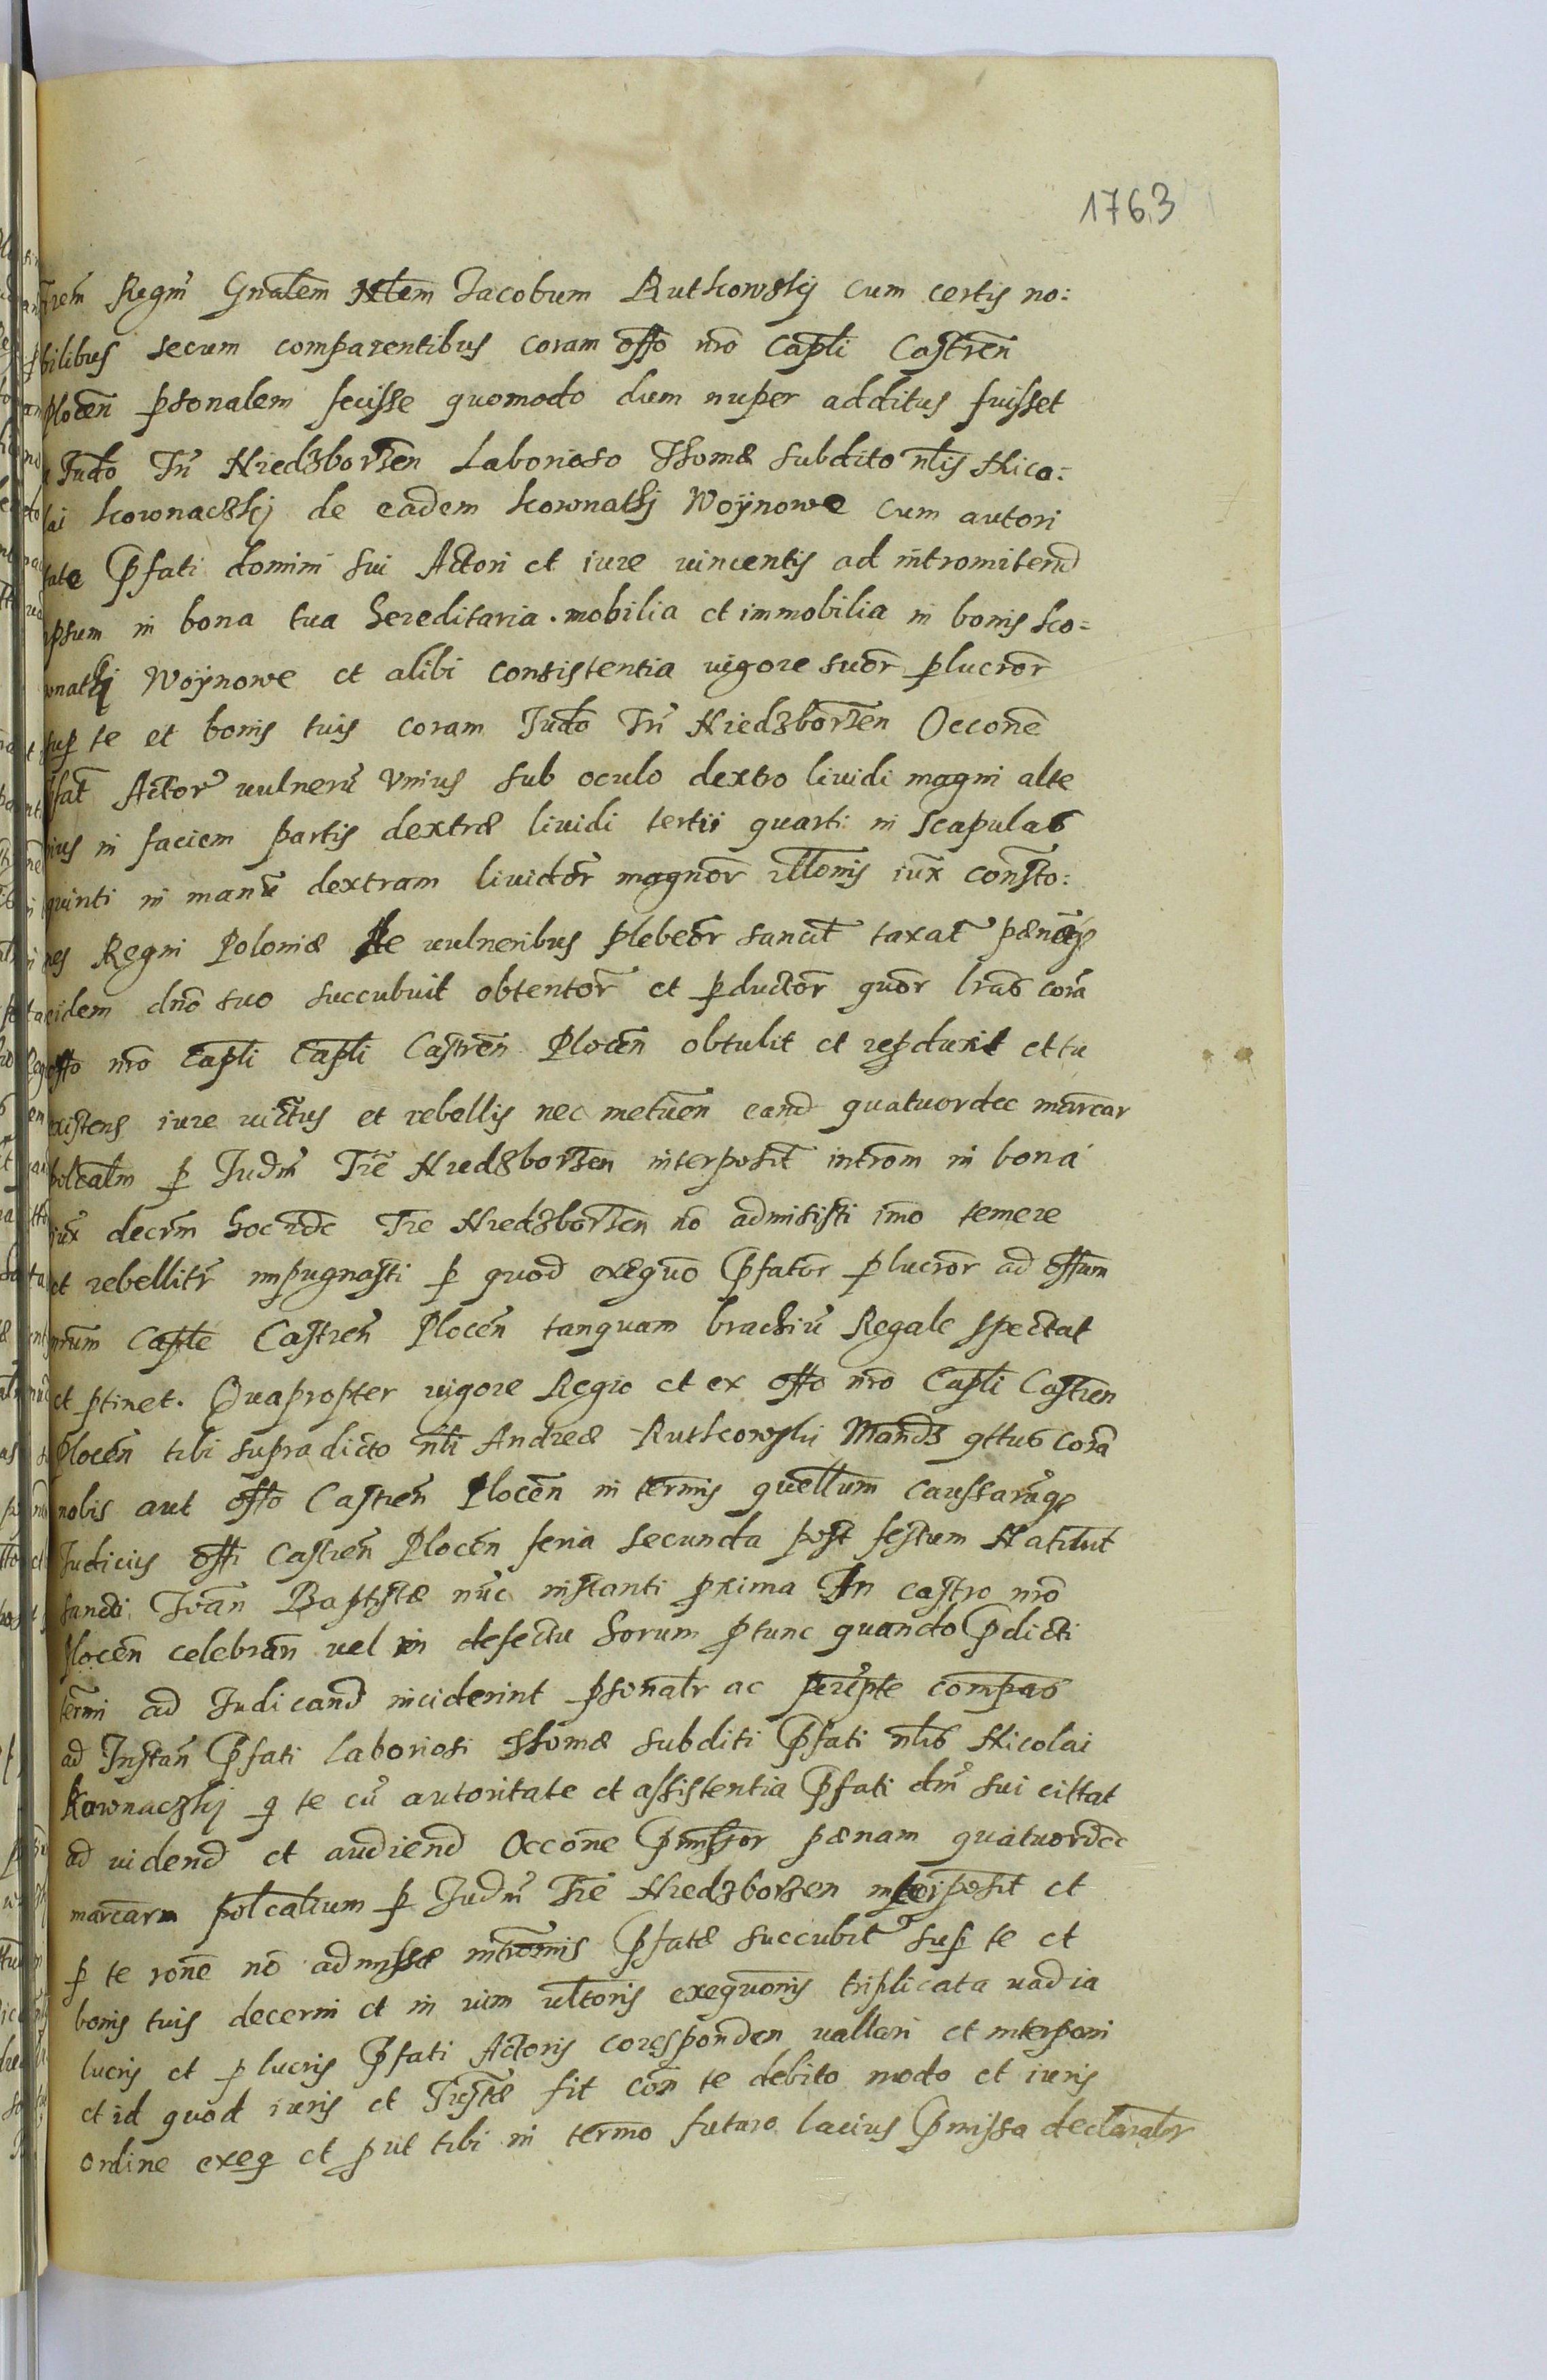 1763
trem Regni Gnalem Nlem Iacobum Rutkowskij cum certis no:
bilibus secum comparentibus coram offo nro Capli Castren
plocen psonalem fecisse quomodo dum nuper additus fuisset
a Iudo Tri Niedzborzen Laborioso Thomæ subdito nlis Nico:
lai kownaczkj de eadem kownathj Woÿnowe cum autori
tate Pfati domini sui Actori et iure vincentis ad intromitend
ipsum in bona tua hereditaria. mobilia et immobilia in bonis ko=
wnatkj Woÿnowe et alibi consistentia vigore suor plucror
sup te et bonis tuis coram Iudo Tri Niedzborzen Occone
pfat Actor vulneru Vnius sub oculo dextro lividi magni alte
rius in faciem partis dextræ lividi tertii quarti in scapulas
quinti in manu dextram lividor magnor illonis iux consto:
nes Regni Poloniæ de vulneribus plebeor sancit taxat pænasqz
eidem dno suo succubuit obtentor et pductor quor lras cora
offo nro Capli Capli Castren Plocen obtulit et repduxit et tu
existens iure victus et rebellis nec metuen eand quatuordec marcar
polcalm p Iudm Tre Niedzborzen interposit introm in bona
iux decrm hocinde Tre Niedzborzen no admisisti imo temere
et rebellitr impugnasti p quod exequo Pfator plucror ad offum
nrum Caple Castren Plocen tanquam brachiu Regale spectat
et ptinet. Quapropter vigore Regio et ex offo nro Capli Castren
Plocen tibi supradicto nli Andreæ Rutkowskii Mandz qttus cora
nobis aut offo Castren Plocen in termis quellum caussarumqz
Iudiciis offi Castren Plocen feria secunda post festum Natiut
sancti Ioan Baptistæ nuc instanti pxima In castro nro
Plocen celebran vel in defectu horum ptunc quando Pdicti
termi ad Iudicand inciderint psonalr ac perepte compas
ad Instan Pfati Laboriosi Thomæ subditi Pfati nlis Nicolai
Kownaczkj q te cu autoritate et assistentia Pfati dni sui cittat
ad vidend et audiend Occone Pmissor pænam quatuordec
marcarm polcalium p Iudm Tre Niedzborzen interposit et
p te rone no admissæ intromis Pfatæ succubit sup te et
bonis tuis decerni et in vim ultoris exequonis triplicata vadia
lucris et plucris Pfati Actoris coresponden vallari et interponi
et id quod iuris et Iustæ fit con te debito modo et iuris
ordine exeq et put tibi in termo futuro lacius Pmissa declarabr